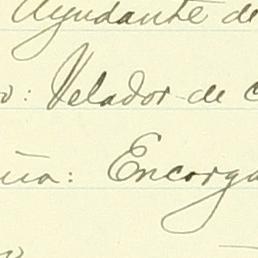 Ayudante de
o: Velador de c
ña: Encarga